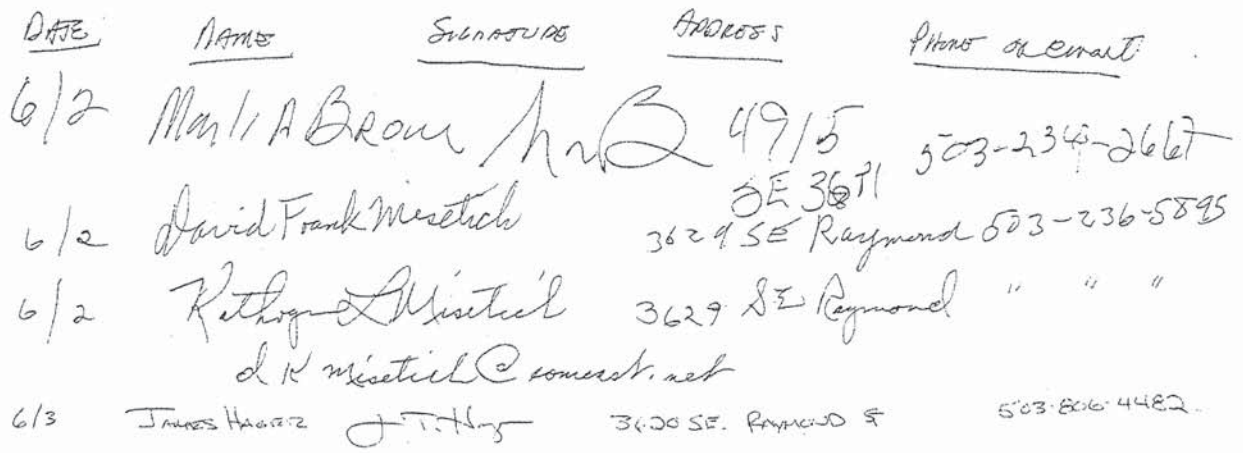 DATE NAME SIGNATURE ADDRESS PHONE or email
6/2 Mark A Brown 4915 503-234-2667
SE 36 Pl
6/2 David Frank Misetich 3629 SE Raymond 503-236-5895
6/2 Kathryn L Misetich 3629 SE Raymond " " "
d K misetich@comcast.net
6/3 JAMES HAGER J.T. Hag 3620 SE. RAYMOND St 503-806-4482